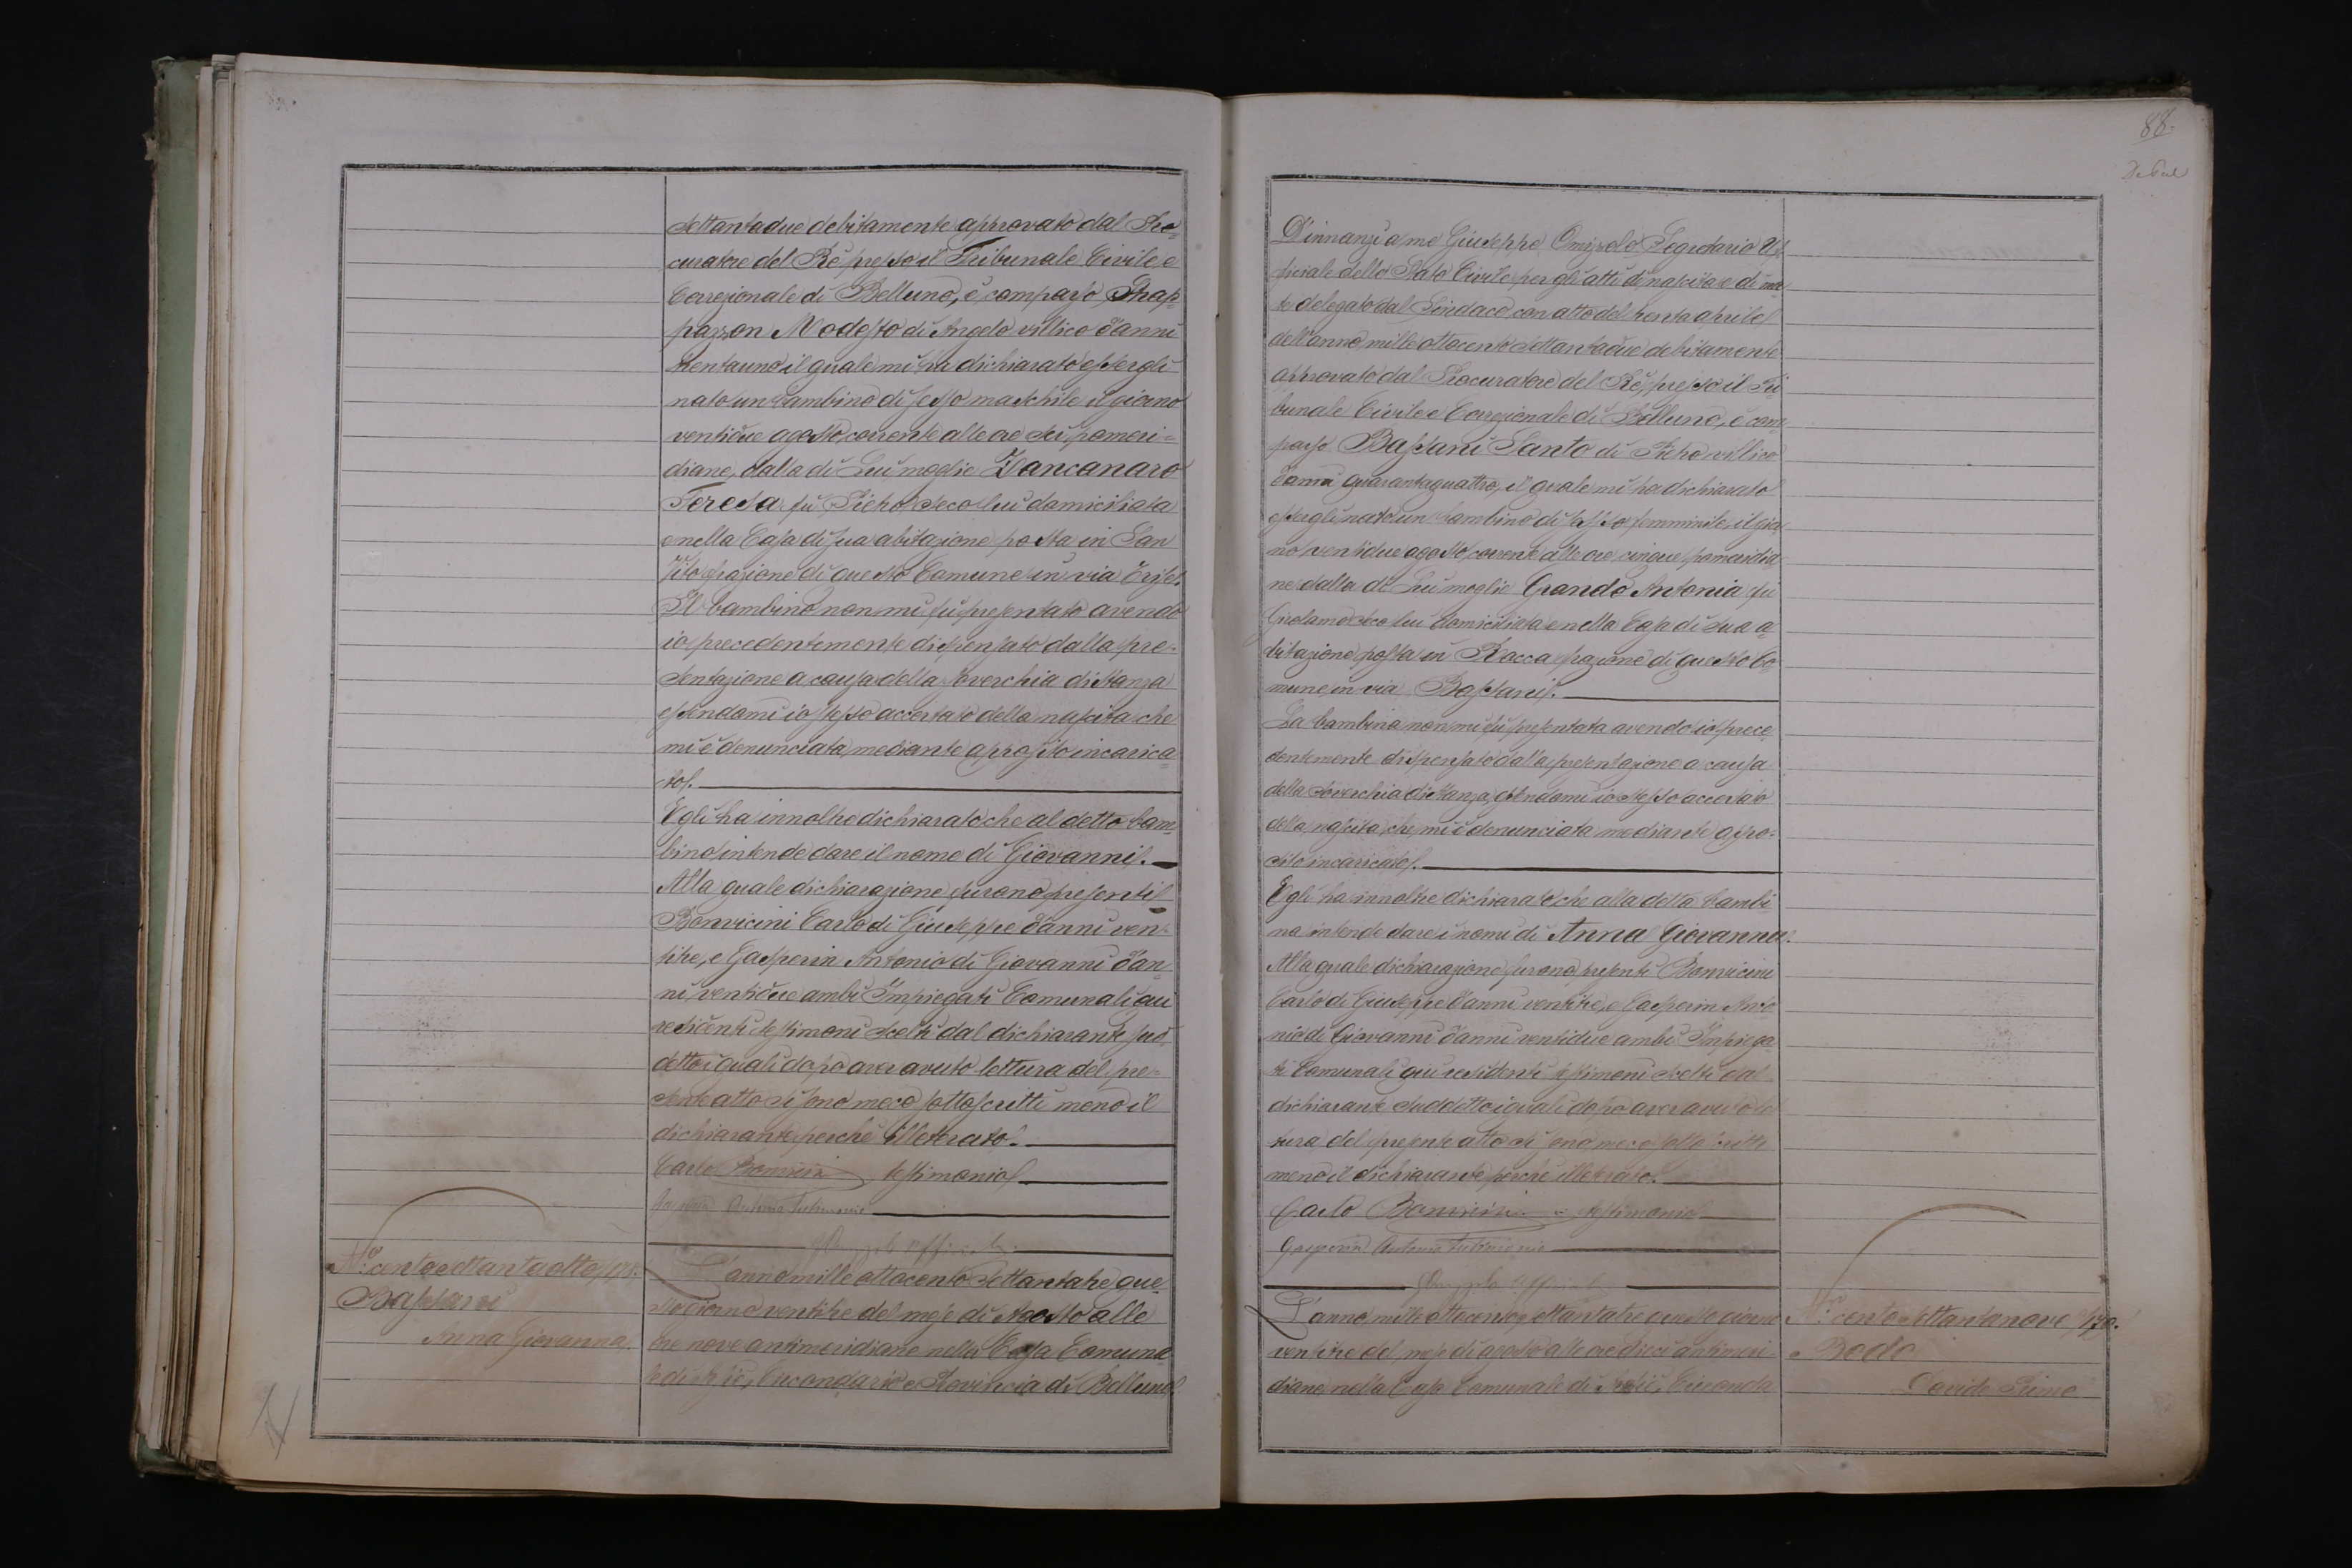 settantadue debitamente approvato dal Pro=
curatore del Rè presso il Tribunale Civile e
Correzionale di Belluno, è comparso Strap=
pazzon Modesto di Angelo villico d'anni
trentauno il quale mi ha dichiarato essergli
nato un bambino di sesso maschile il giorno
ventidue agosto corrente alle ore sei pomeri=
diane, dalla di Lui moglie Zancanaro
Teresa fù Pietro seco lui domiciliata
e nella Casa di sua abitazione posta in San
Vito frazione di questo Comune in via
Il bambino non mi fù presentato avendo
io precedentemente dispensato dalla pre=
sentazione a causa della soverchia distanza
essendomi io stesso accertato della nascita che
mi è denunciata, mediante apposito incarica=
to.
Egli ha innoltre dichiarato che al detto bam=
bino intende dare il nome di Giovanni.
Alla quale dichiarazione furono presenti
Bonvicini Carlo di Giuseppe d'anni ven=
titre, e Gasperin Antonio di Giovanni d'an=
ni ventidue ambi Impiegati Comunali qui
residenti testimoni scelti dal dichiarante sud=
detto i quali dopo aver avuto lettura del pre=
sente atto si sono meco sottoscritti meno il
dichiarante perchè illetterato.
Carlo Bonvicini testimonio
Gasperin Antonio Testimonio
Omizzolo Officiale
N.° centosettantaotto 178.
Bassani
Anna Giovanna.
L'anno mille ottocento settantatre que=
sto giorno ventitre del mese di Agosto alle
ore nove antimeridiane nella Casa Comuna
le di Circondario e Provincia di Belluno
88.
D'innanzi a me Giuseppe Omizzolo Segretario Uf=
ficiale dello Stato Civile per gli atti di nascita e di mor=
te delegato dal Sindaco con atto del trenta aprile
dell'anno mille ottocento settantadue debitamente
approvato dal Procuratore del Rè presso il Tri
bunale Civile e Correzionale di Belluno, è com
parso Bassani Santo di Pietro villico
d'anni quarantaquattro, il quale mi ha dichiarato
essergli nato un bambino di sesso femminile, il gior
no ventidue agosto corrente alle ore cinque pomeridia
ne dalla di Lui moglie Grando Antonia fù
Girolamo seco lui domiciliata e nella Casa di sua a=
bitazione posta in Racca frazione di questo Co=
mune in via Bassani.
La bambina non mi fù presentata avendo io prece
dentemente dispensato dalla presentazione a causa
della soverchia distanza, essendomi io stesso accertato
della nascita che mi è denunciata mediante appo=
sito incaricato.
Egli ha innoltre dichiarato che alla detta bambi
na intende dare i nomi di Anna Giovanna.
Alla quale dichiarazione furono presenti Bonvicini
Carlo di Giuseppe d'anni ventitre, e Gasperin Anto
nio di Giovanni d'anni ventidue ambi Impiega=
ti Comunali qui residenti testimoni scelti dal
dichiarante suddetto i quali dopo aver avuto let
tura del presente atto si sono meco sottoscritti
meno il dichiarante perchè illetterato.
Carlo Bonvicini testimonio
Gasperin Antonio Testimonio
Omizzolo Officiale
L'anno mille ottocento settantatre questo giorno
ventitre del mese di agosto alle ore dieci antimeri
diane nella Casa Comunale di Circonda
N.° centosettantanove 179.
Bodo
Davide Primo